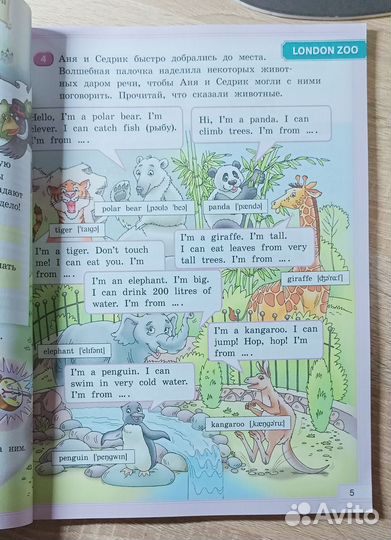 LONDON ZOO
4 Аня и Седрик быстро добрались до места.
Волшебная палочка наделила некоторых живот-
ных даром речи, чтобы Аня и Седрик могли с ними
поговорить. Прочитай, что сказали животные.
Hello, I'm a polar bear. I'm
clever. I can catch fish (рыбу).
I'm from ... .
Hi, I'm a panda. I can
climb trees. I'm from ... .
polar bear [ˌpəʊlə ˈbeə]
panda [ˈpændə]
tiger [ˈtaɪɡə]
I'm a tiger. Don't touch
me! I can eat you. I'm
from ... .
I'm a giraffe. I'm tall.
I can eat leaves from very
tall trees. I'm from ... .
giraffe [dʒəˈrɑːf]
I'm an elephant. I'm big.
I can drink 200 litres of
water. I'm from ... .
elephant [ˈelɪfənt]
I'm a kangaroo. I can
jump! Hop, hop! I'm
from ... .
I'm a penguin. I can
swim in very cold water.
I'm from ... .
kangaroo [ˌkæŋɡəˈruː]
penguin [ˈpeŋɡwɪn]
5
ную
ы
адают
дело!
ать
а ним.
Avito